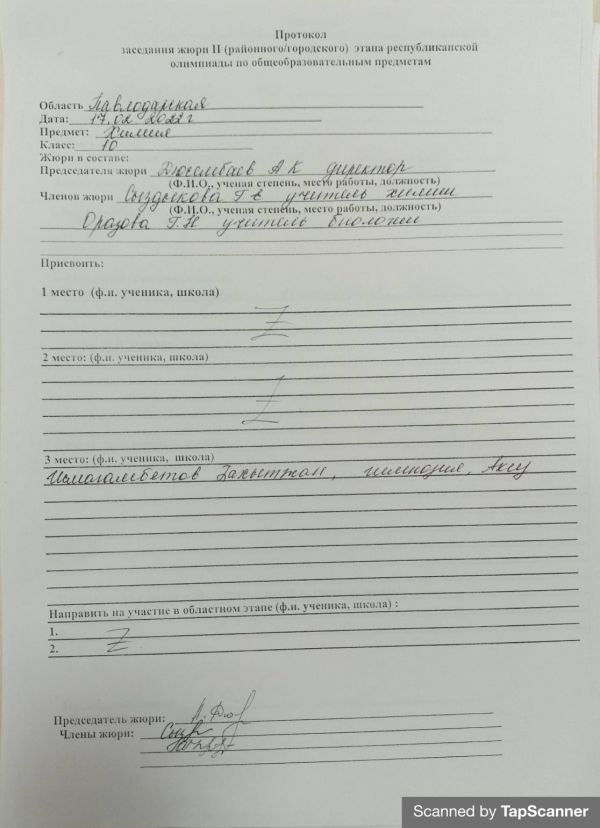 Протокол
заседания жюри II (районного/городского) этапа республиканской
олимпиады по общеобразовательным предметам
Область Павлодарская
Дата: 17.02 2022 г
Предмет: Химия
Класс: 10
Жюри в составе:
Председателя жюри Дюсембаев А К директор
(Ф.И.О., ученая степень, место работы, должность)
Членов жюри Сыздыкова Г Е учитель химии
(Ф.И.О., ученая степень, место работы, должность)
Оразова Г.Н учитель биологии
Присвоить:
1 место (ф.и. ученика, школа)
Z
2 место: (ф.и. ученика, школа)
Z
3 место: (ф.и. ученика, школа)
Исмагамбетов Закытжан, гимназия, Аксу
Направить на участие в областном этапе (ф.и. ученика, школа) :
1.
Z
2.
Председатель жюри:
Члены жюри:
Scanned by TapScanner